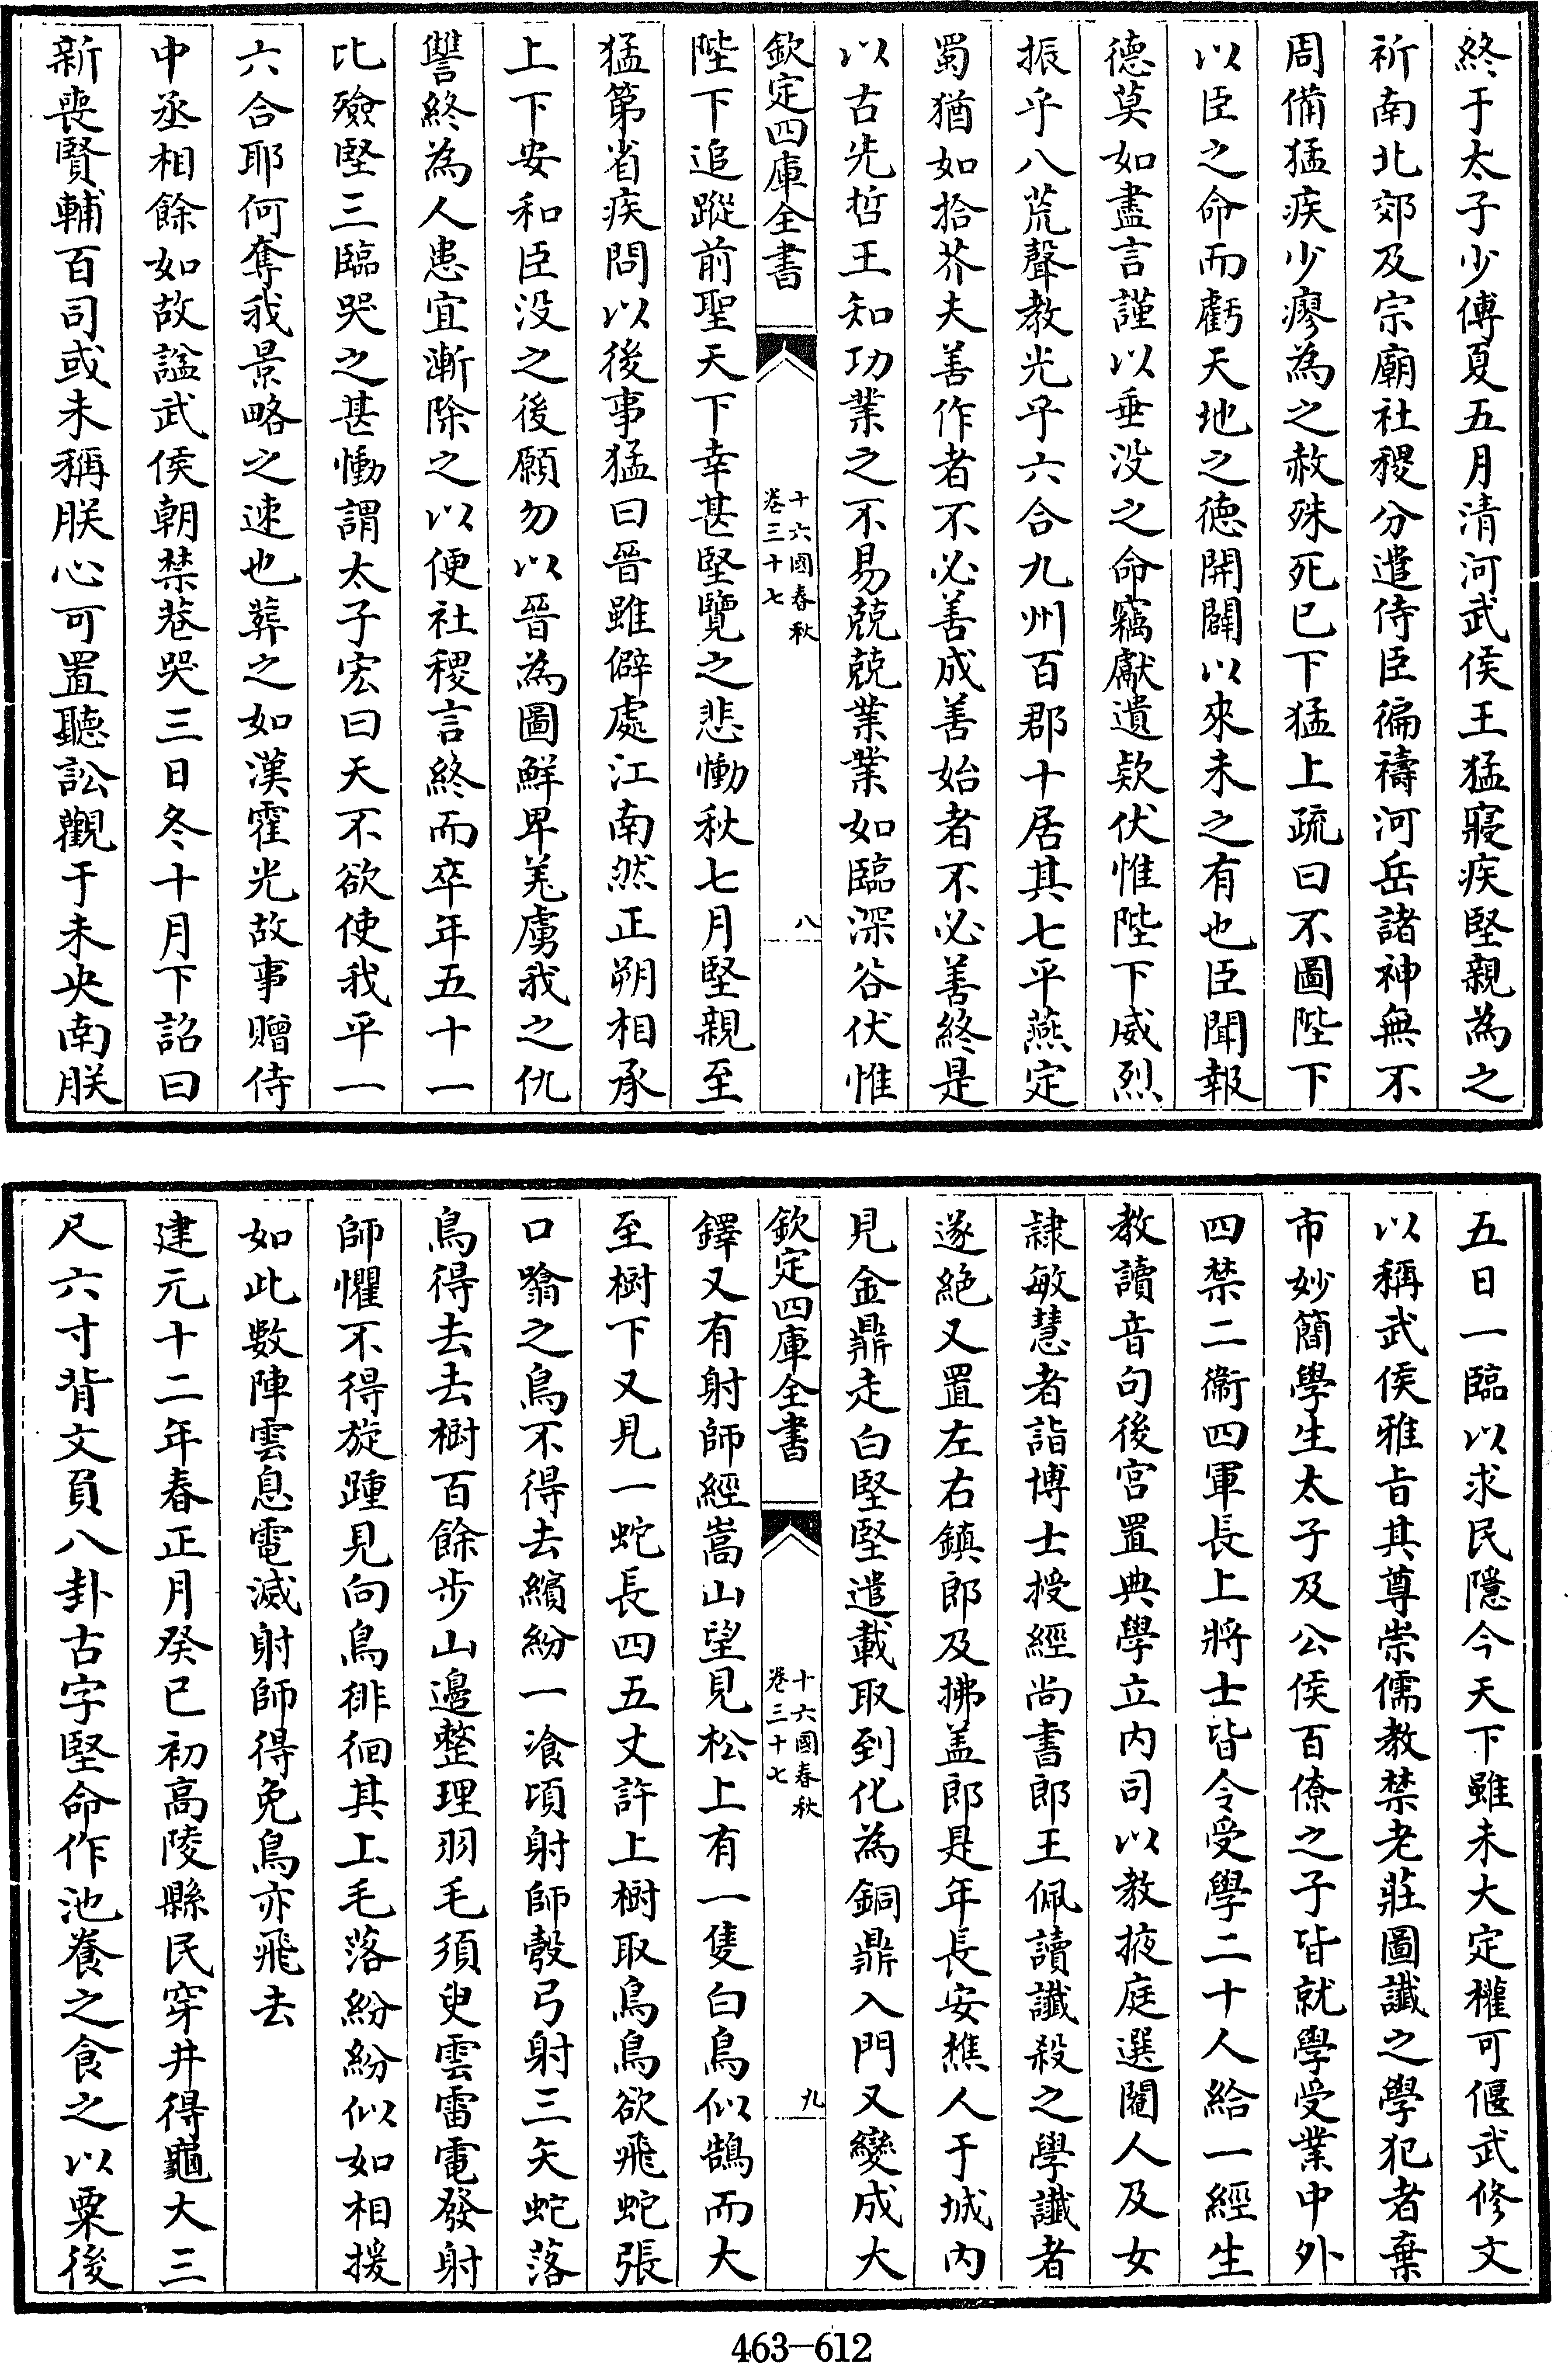 終于太子少傅夏五月清河武侯王猛寢疾堅親為之
祈南北郊及宗廟社稷分遣侍臣徧禱河岳諸神無不
周備猛疾少瘳為之赦殊死已下猛上疏曰不圖陛下
以臣之命而虧天地之德開闢以來未之有也臣聞報
德莫如盡言謹以垂没之命竊獻遺欵伏惟陛下威烈
振乎八荒聲教光乎六合九州百郡十居其七平燕定
蜀猶如拾芥夫善作者不必善成善始者不必善終是
以古先哲王知功業之不易兢兢業業如臨深谷伏惟
欽定四庫全書
十六國春秋
卷三十七
八
陛下追蹤前聖天下幸甚堅覽之悲慟秋七月堅親至
猛第省疾問以後事猛曰晉雖僻處江南然正朔相承
上下安和臣没之後願勿以晉為圖鮮卑羌虜我之仇
讐終為人患宜漸除之以便社稷言終而卒年五十一
比殮堅三臨哭之甚慟謂太子宏曰天不欲使我平一
六合耶何奪我景略之速也葬之如漢霍光故事贈侍
中丞相餘如故諡武侯朝禁巷哭三日冬十月下詔曰
新喪賢輔百司或未稱朕心可置聽訟觀于未央南朕
五日一臨以求民隱今天下雖未大定權可偃武修文
以稱武侯雅㫖其尊崇儒教禁老莊圖讖之學犯者棄
市妙簡學生太子及公侯百僚之子皆就學受業中外
四禁二衞四軍長上將士皆令受學二十人給一經生
教讀音句後宮置典學立内司以教掖庭選閹人及女
隷敏慧者詣博士授經尚書郎王佩讀讖殺之學讖者
遂絶又置左右鎮郎及拂盖郎是年長安樵人于城内
見金鼎走白堅堅遣載取到化為銅鼎入門又變成大
欽定四庫全書
十六國春秋
卷三十七
九
鐸又有射師經嵩山望見松上有一隻白鳥似鵠而大
至樹下又見一蛇長四五丈許上樹取鳥鳥欲飛蛇張
口噏之鳥不得去繽紛一飡頃射師彀弓射三矢蛇落
鳥得去去樹百餘步山邊整理羽毛須臾雲雷電發射
師懼不得旋踵見向鳥徘徊其上毛落紛紛似如相援
如此數陣雲息電滅射師得免鳥亦飛去
建元十二年春正月癸巳初高陵縣民穿井得龜大三
尺六寸背文負八卦古字堅命作池養之食之以粟後
463-612